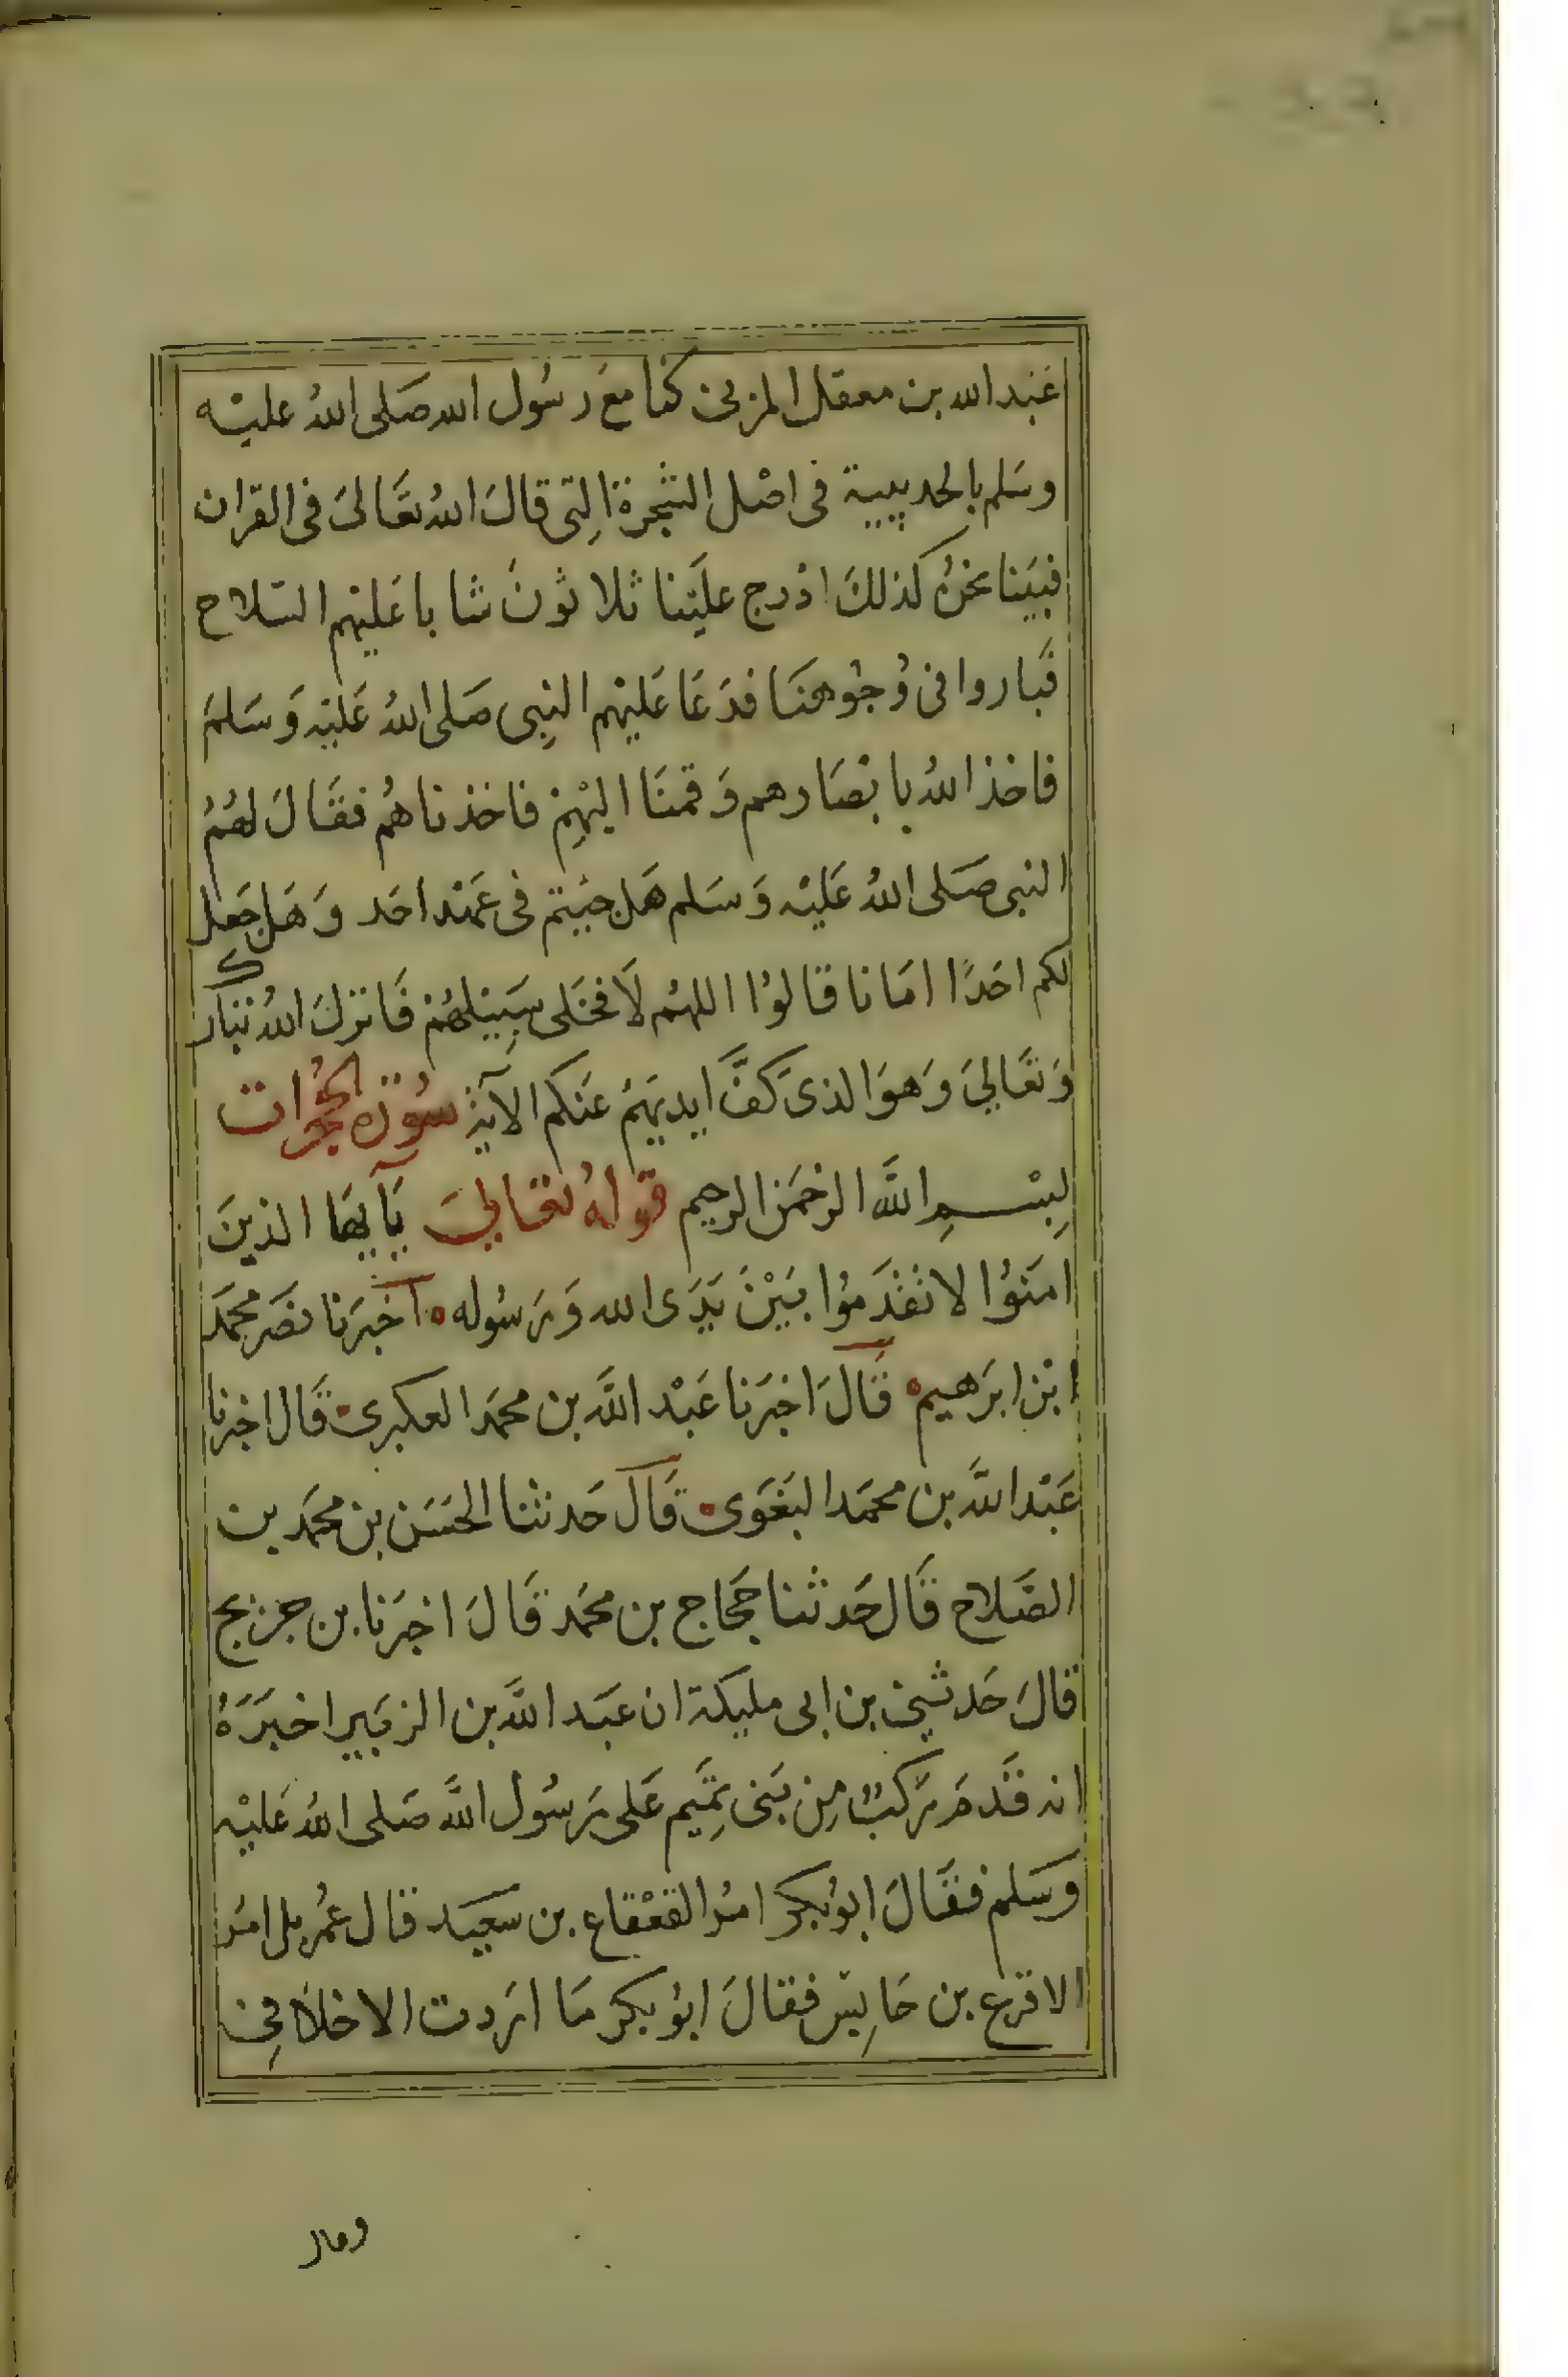 عَبد الله بن معقل المزنى كنا معَ رسُول الله صَلى اللهُ عليْه
وسَلم بالحديبية فى اصْل الشجرة التِى قالَ اللهُ تعَالىَ فى القران
فبَينا نحنُ كذلكَ اذ رج علَينا ثلاثونَ شابا عَليْهم السّلاح
فَباروا فى وُجوُهنَا فدَعَا عَليْهم النبِى صَلى اللهُ عَليْه وَسَلمَ
فاخذ اللهُ بابْصَارهم وَقمنَا اليْهِمْ فاخذناهُم فقَالَ لهُمُ
النبى صَلى اللهُ عَليْه وَسَلم هَل جئيتم فى عَهْد احَد وَهَل جَعل
لكم احَدًا امَانا قالوُا اللهُم لَا فخَلى سَبِيْلهُمْ فَانزلَ اللهُ تبَارك
وَتعَالىَ وَهوَ الذىَ كفَّ ايديَهُم عَنكم الآيَةِ سُوْرَة الحُجُرات
بِسْــمِ اللَّه الرحْمَن الرحِيم قولهُ تعَالىَ يَآيهَا الذينَ
امَنوُا لا تقدَموُا بَيْنَ يَدَى الله وَرَسُوله ۰ اَخبَرَنا نصَر محمَد
ابْن ابرَهيم ۰ قَالَ اخبَرَنا عَبْد اللَّه بن محمَد العكبرى ۰ قَال اخبرنا
عَبْد اللَّه بن محمَد البَغَوى ۰ قَالَ حَدثنا الحَسَن بن محمَد بن
الصَلاح قَال حَدثنا حَجاج بن محمَد قَالَ اخبَرَنا بن جريج
قالَ حَدثنِى بن ابى مليكة ان عبَد اللَّه بن الزبَير اخبَرَهُ
انه قَدمَ رَكبٌ مِن بَنى تمِيَم عَلى رَسُول اللَّه صَلى اللهُ عَليْه
وَسَلم فقَالَ ابوُبكر امرُ القعْقاع بن سعيَد قال عمُر بل امرُ
الاقرع بن حَابِس فقالَ ابوُبكر مَا ارَدت الا خلاَفِى
وقال